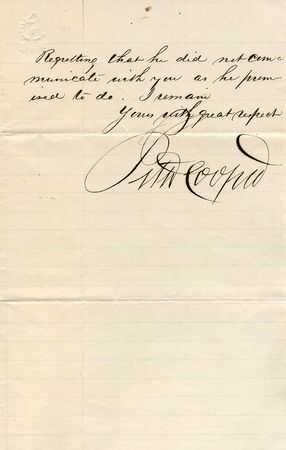 Regretting that he did not com=
municate with you as he prom
ised to do. I remain
Yours with great respect
Peter Cooper